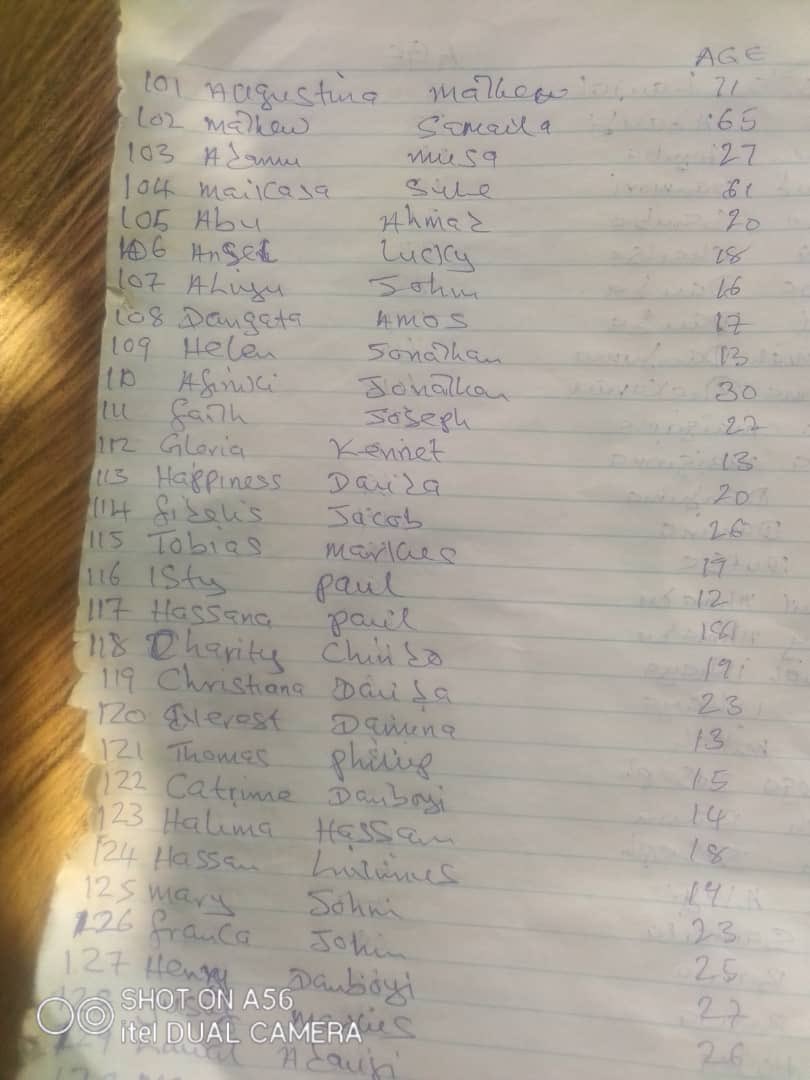 AGE
101 Augustina Mathew 71
102 Mathew Samaila 65
103 Adamu musa 27
104 maikasa Sule 61
105 Abu Ahmad 20
106 Angel Lucky 18
107 Aliyu John 16
108 Dangata Amos 17
109 Helen Jonathan 13
110 Afiniki Jonathan 30
111 faith Joseph 27
112 Gloria Kennet 13
113 Happiness Dauda 20
114 fidelis Jacob 26
115 Tobias markus 19
116 Isty paul 12
117 Hassana paul
118 Charity 19
119 Christiana Dauda 23
120 Everest Damina 13
121 Thomas philip 15
122 Catrine Danboyi 14
123 Halima Hassan 18
124 Hassan 19
125 mary John 23
126 franca John 25
127 Henry Danboyi 27
markus 26
Lawal
SHOT ON A56
itel DUAL CAMERA